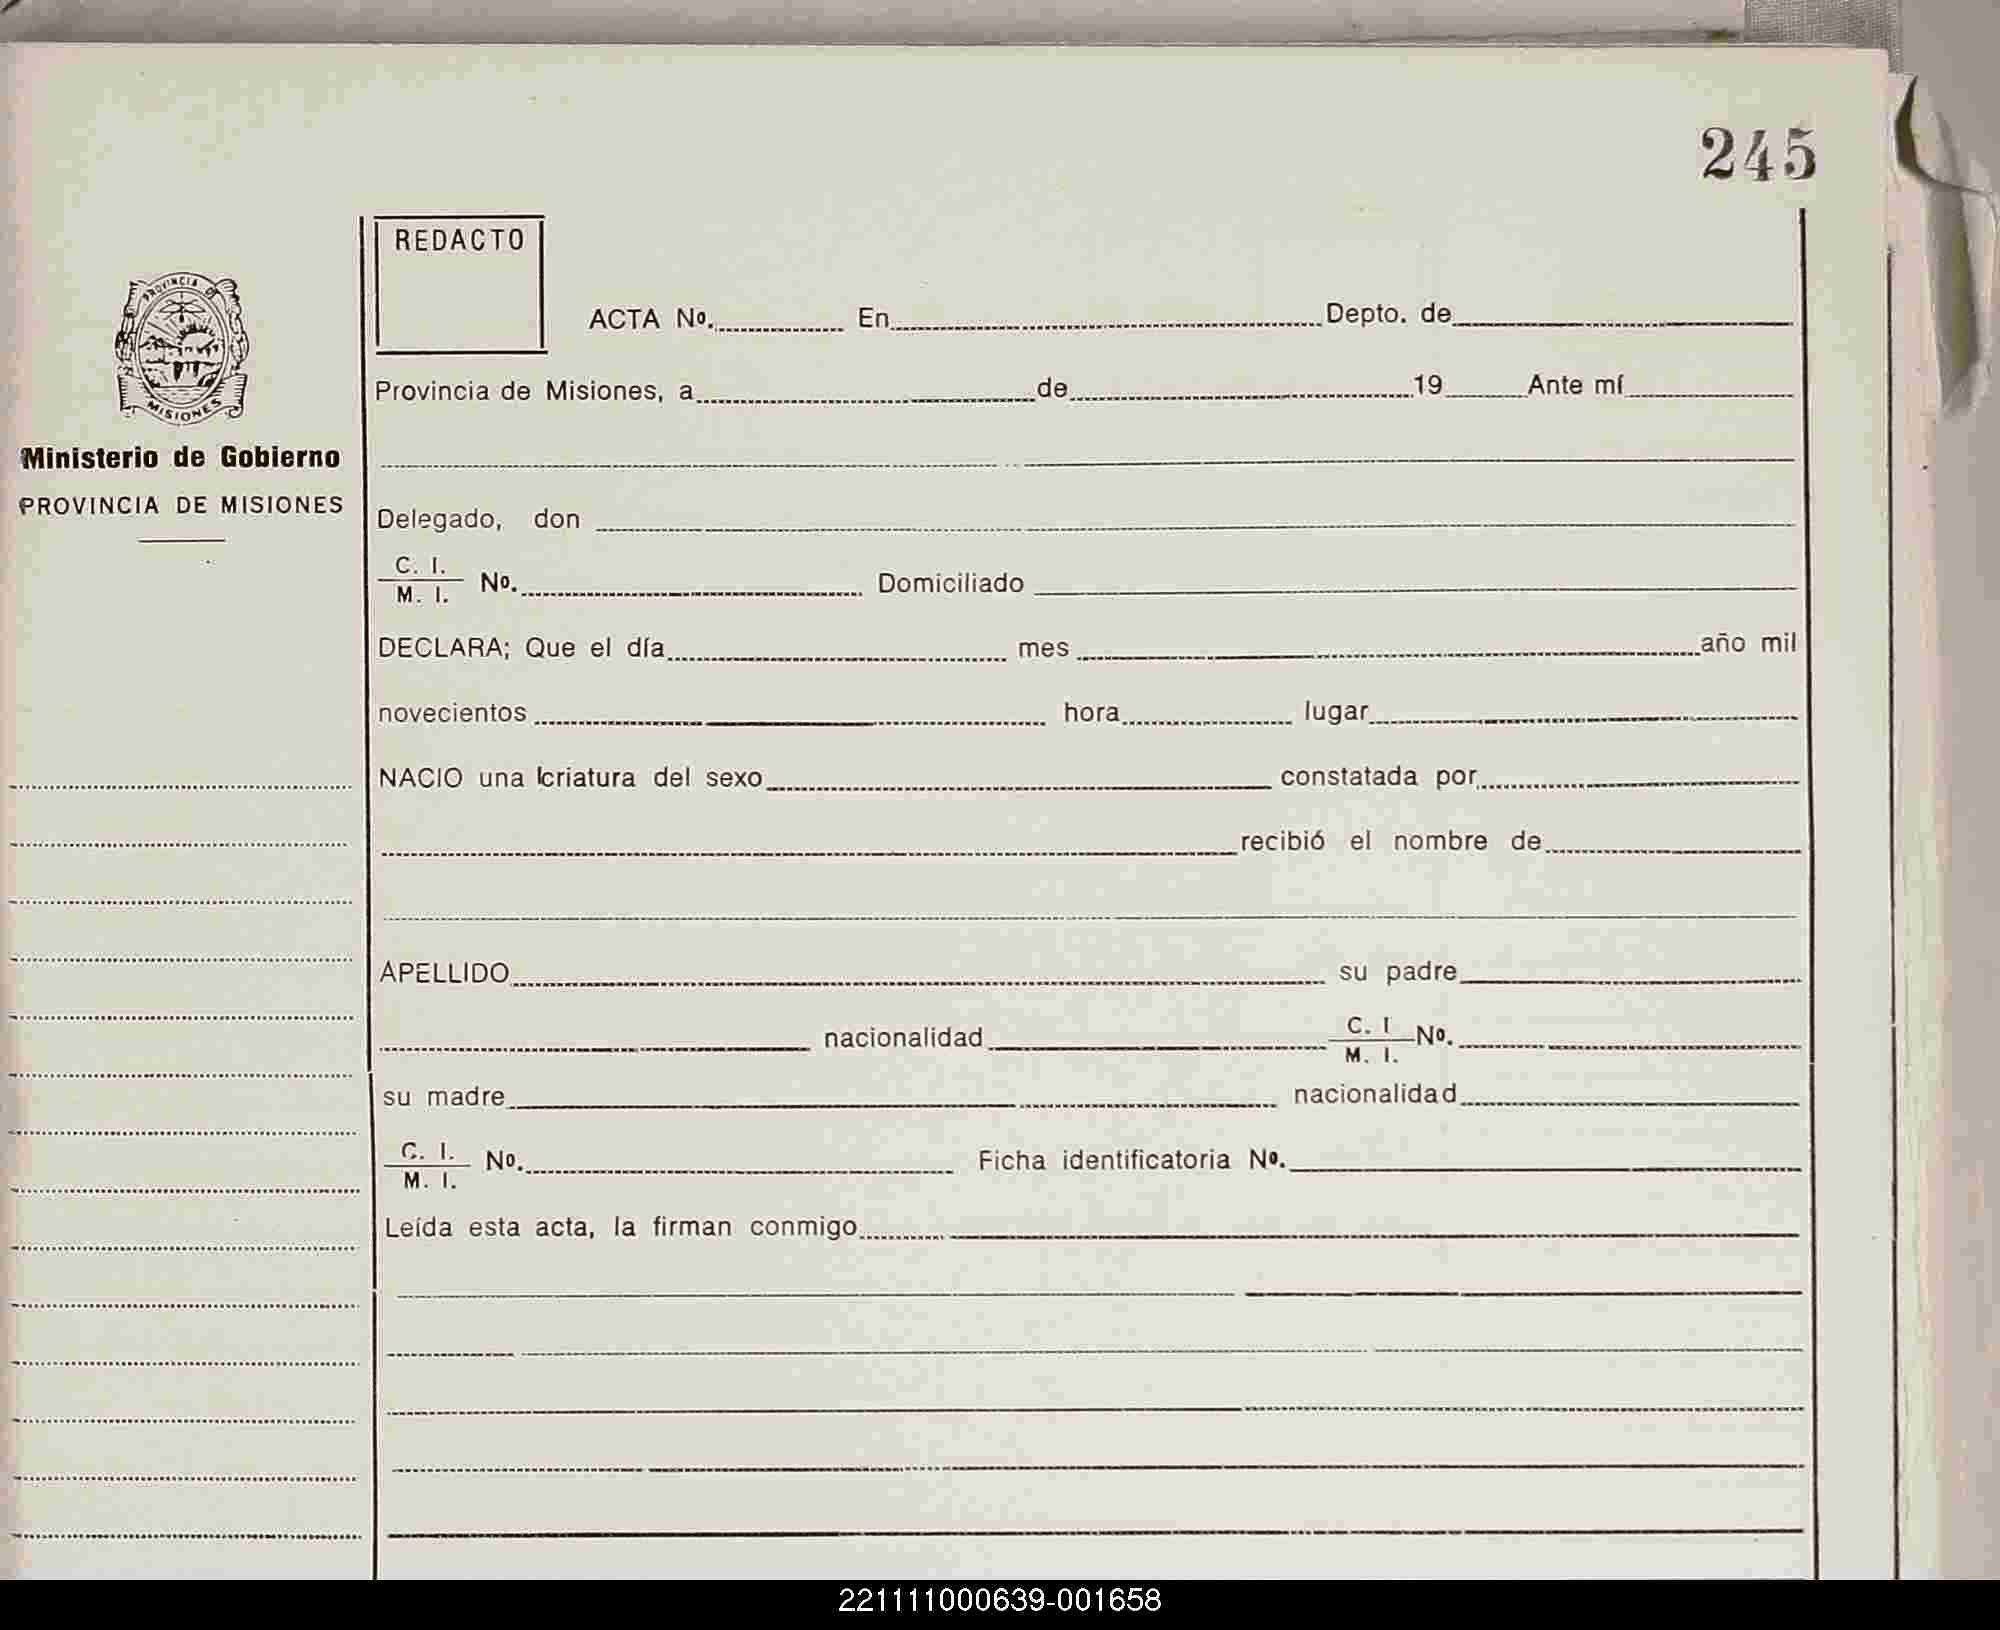 245
REDACTO
PROVINCIA DE
MISIONES
Ministerio de Gobierno
PROVINCIA DE MISIONES
ACTA Nº. En Depto. de
Provincia de Misiones, a de 19 Ante mí
Delegado, don
C. I.
M. I. Nº. Domiciliado
DECLARA; Que el día mes año mil
novecientos hora lugar
NACIO una criatura del sexo constatada por
recibió el nombre de
APELLIDO su padre
nacionalidad C. I
M. I. Nº.
su madre nacionalidad
C. I.
M. I. Nº. Ficha identificatoria Nº.
Leída esta acta, la firman conmigo
221111000639-001658